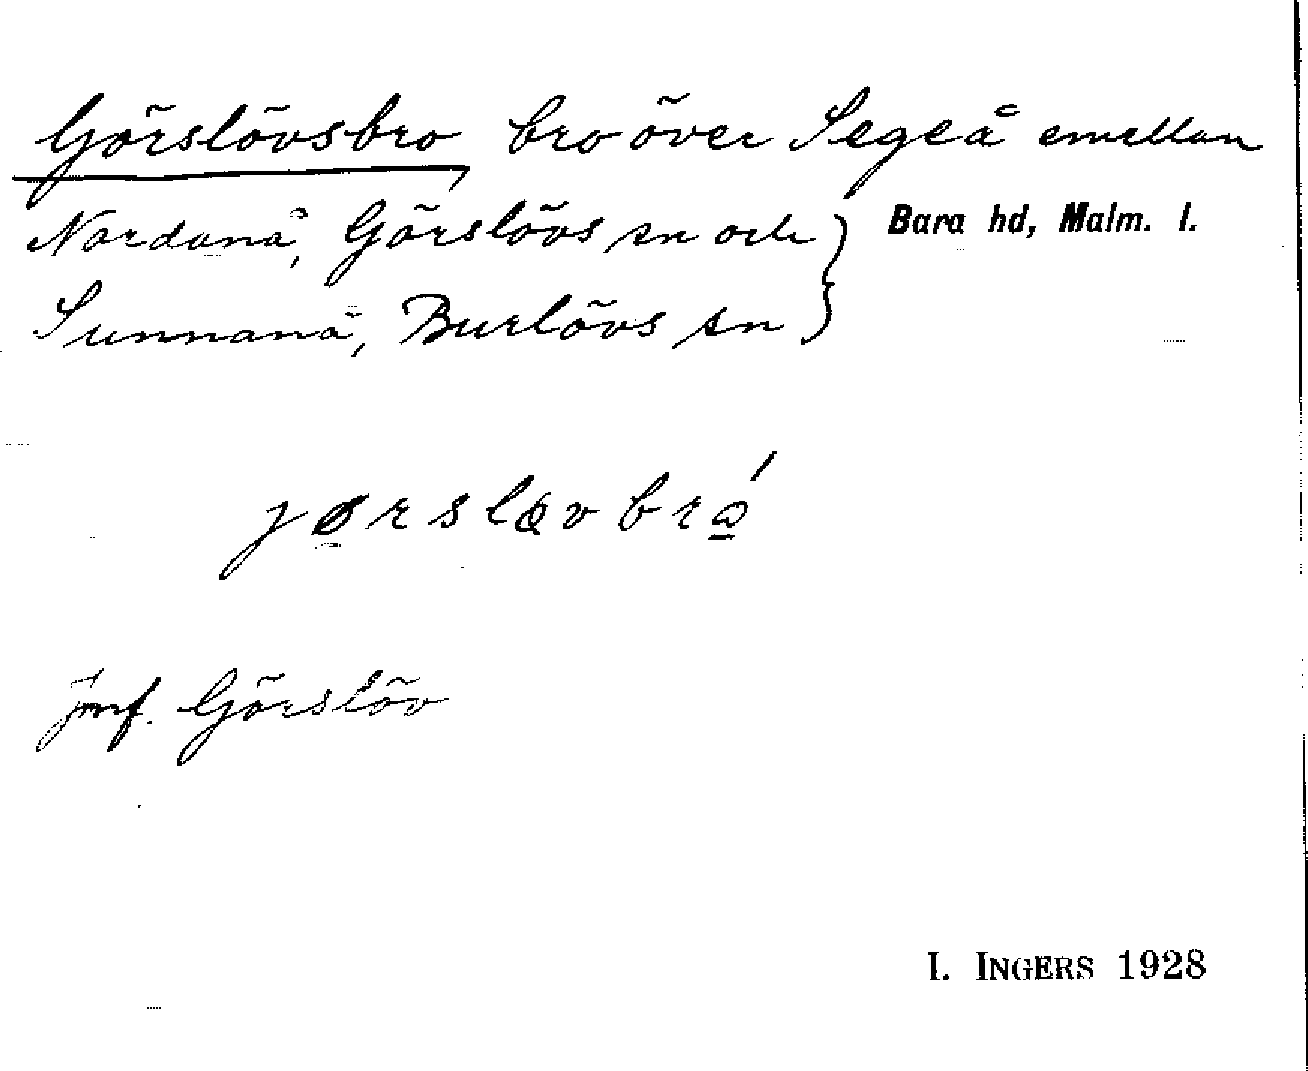 Görslövsbro, bro över Segeå emellan
Nordanå, Görslövs sn och } Bara hd, Malm. l.
Sunnanå, Burlövs sn }
jørsløvbró
jmf. Görslöv
I. INGERS 1928